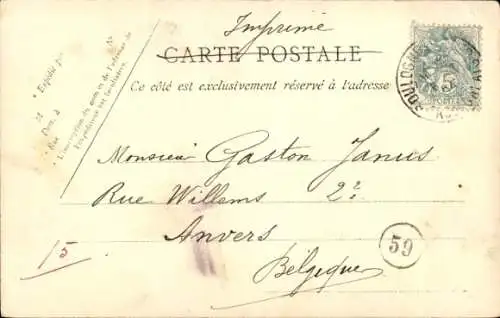 Imprimé
CARTE POSTALE
Ce côté est exclusivement réservé à l'adresse
Expédié par
M
Dem. à
Rue
N°
L'inscription du nom et de l'adresse de
l'expéditeur est facultative.
5
POSTES
BOULOGNE
Monsieur Gaston Janus
Rue Willems 2?
Anvers
Belgique
15
59